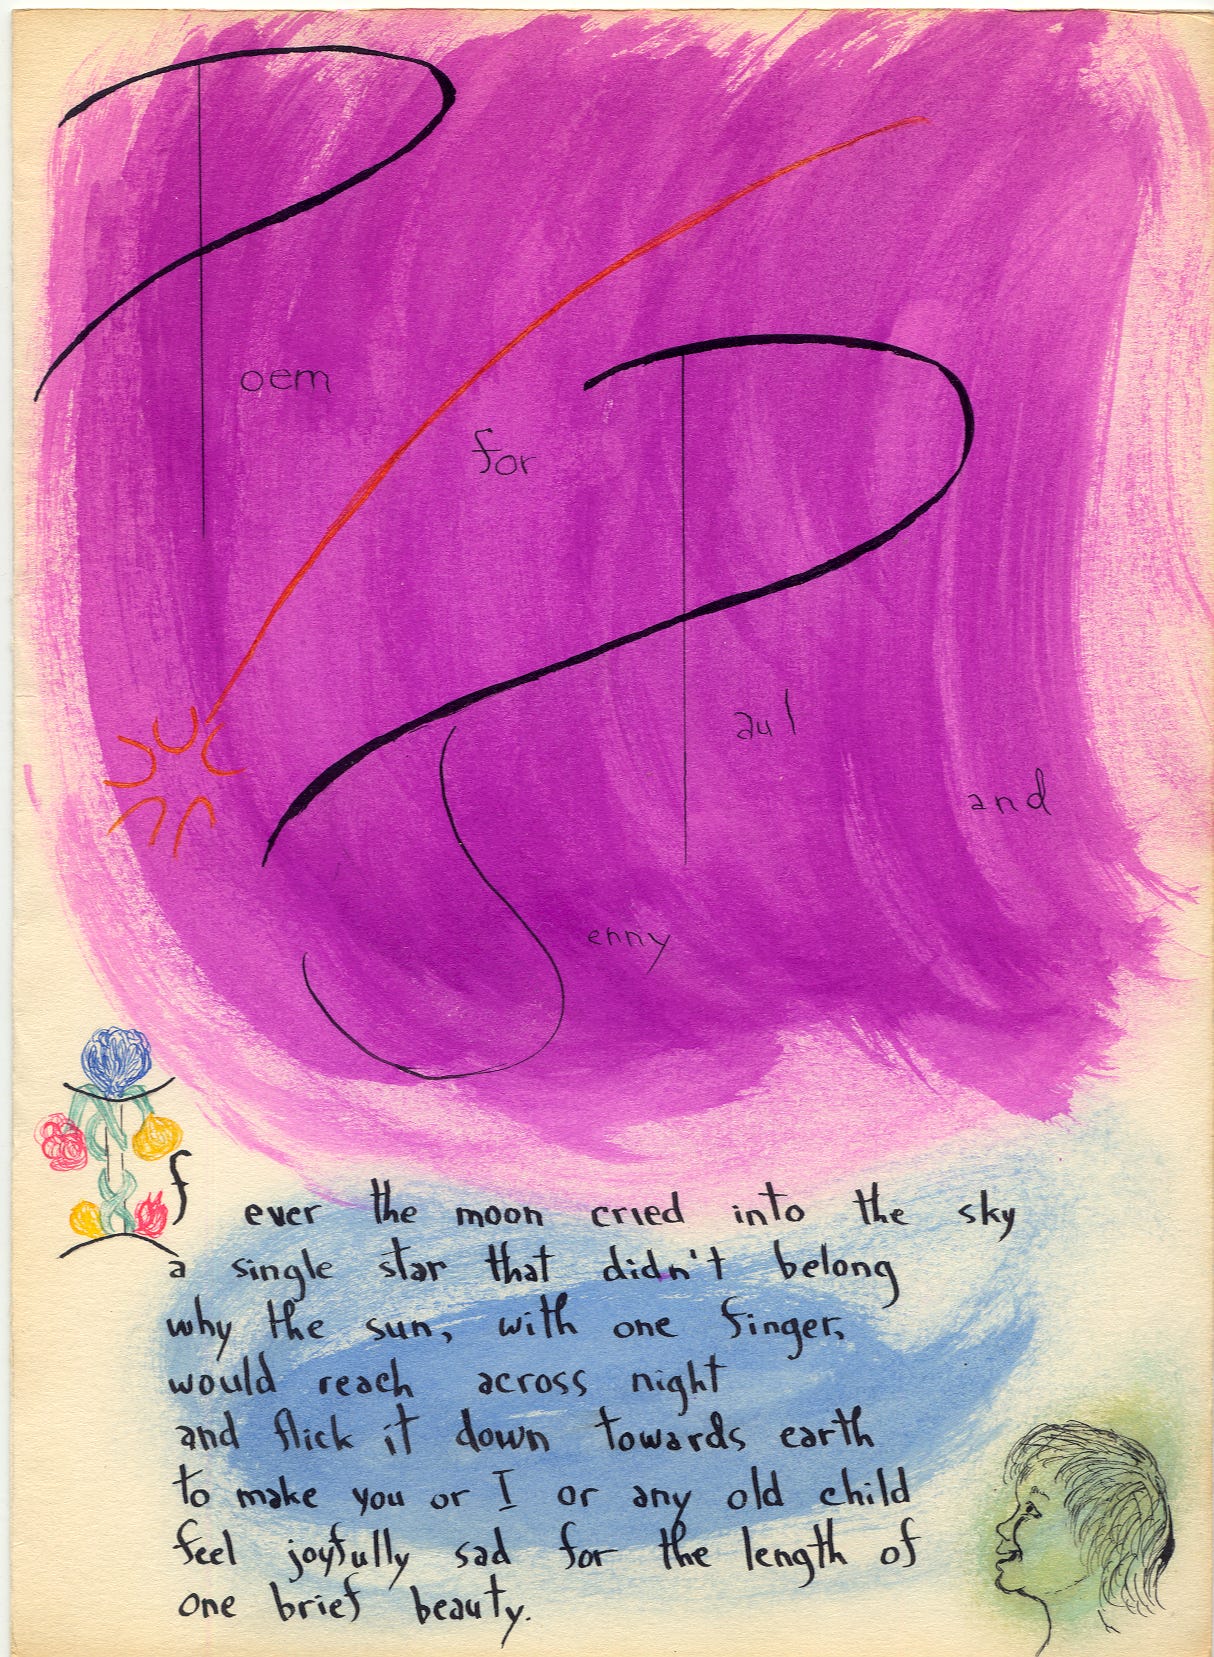 Poem
for
Paul
and
Jenny
If ever the moon cried into the sky
a single star that didn't belong
why the sun, with one finger,
would reach across night
and flick it down towards earth
to make you or I or any old child
feel joyfully sad for the length of
one brief beauty.